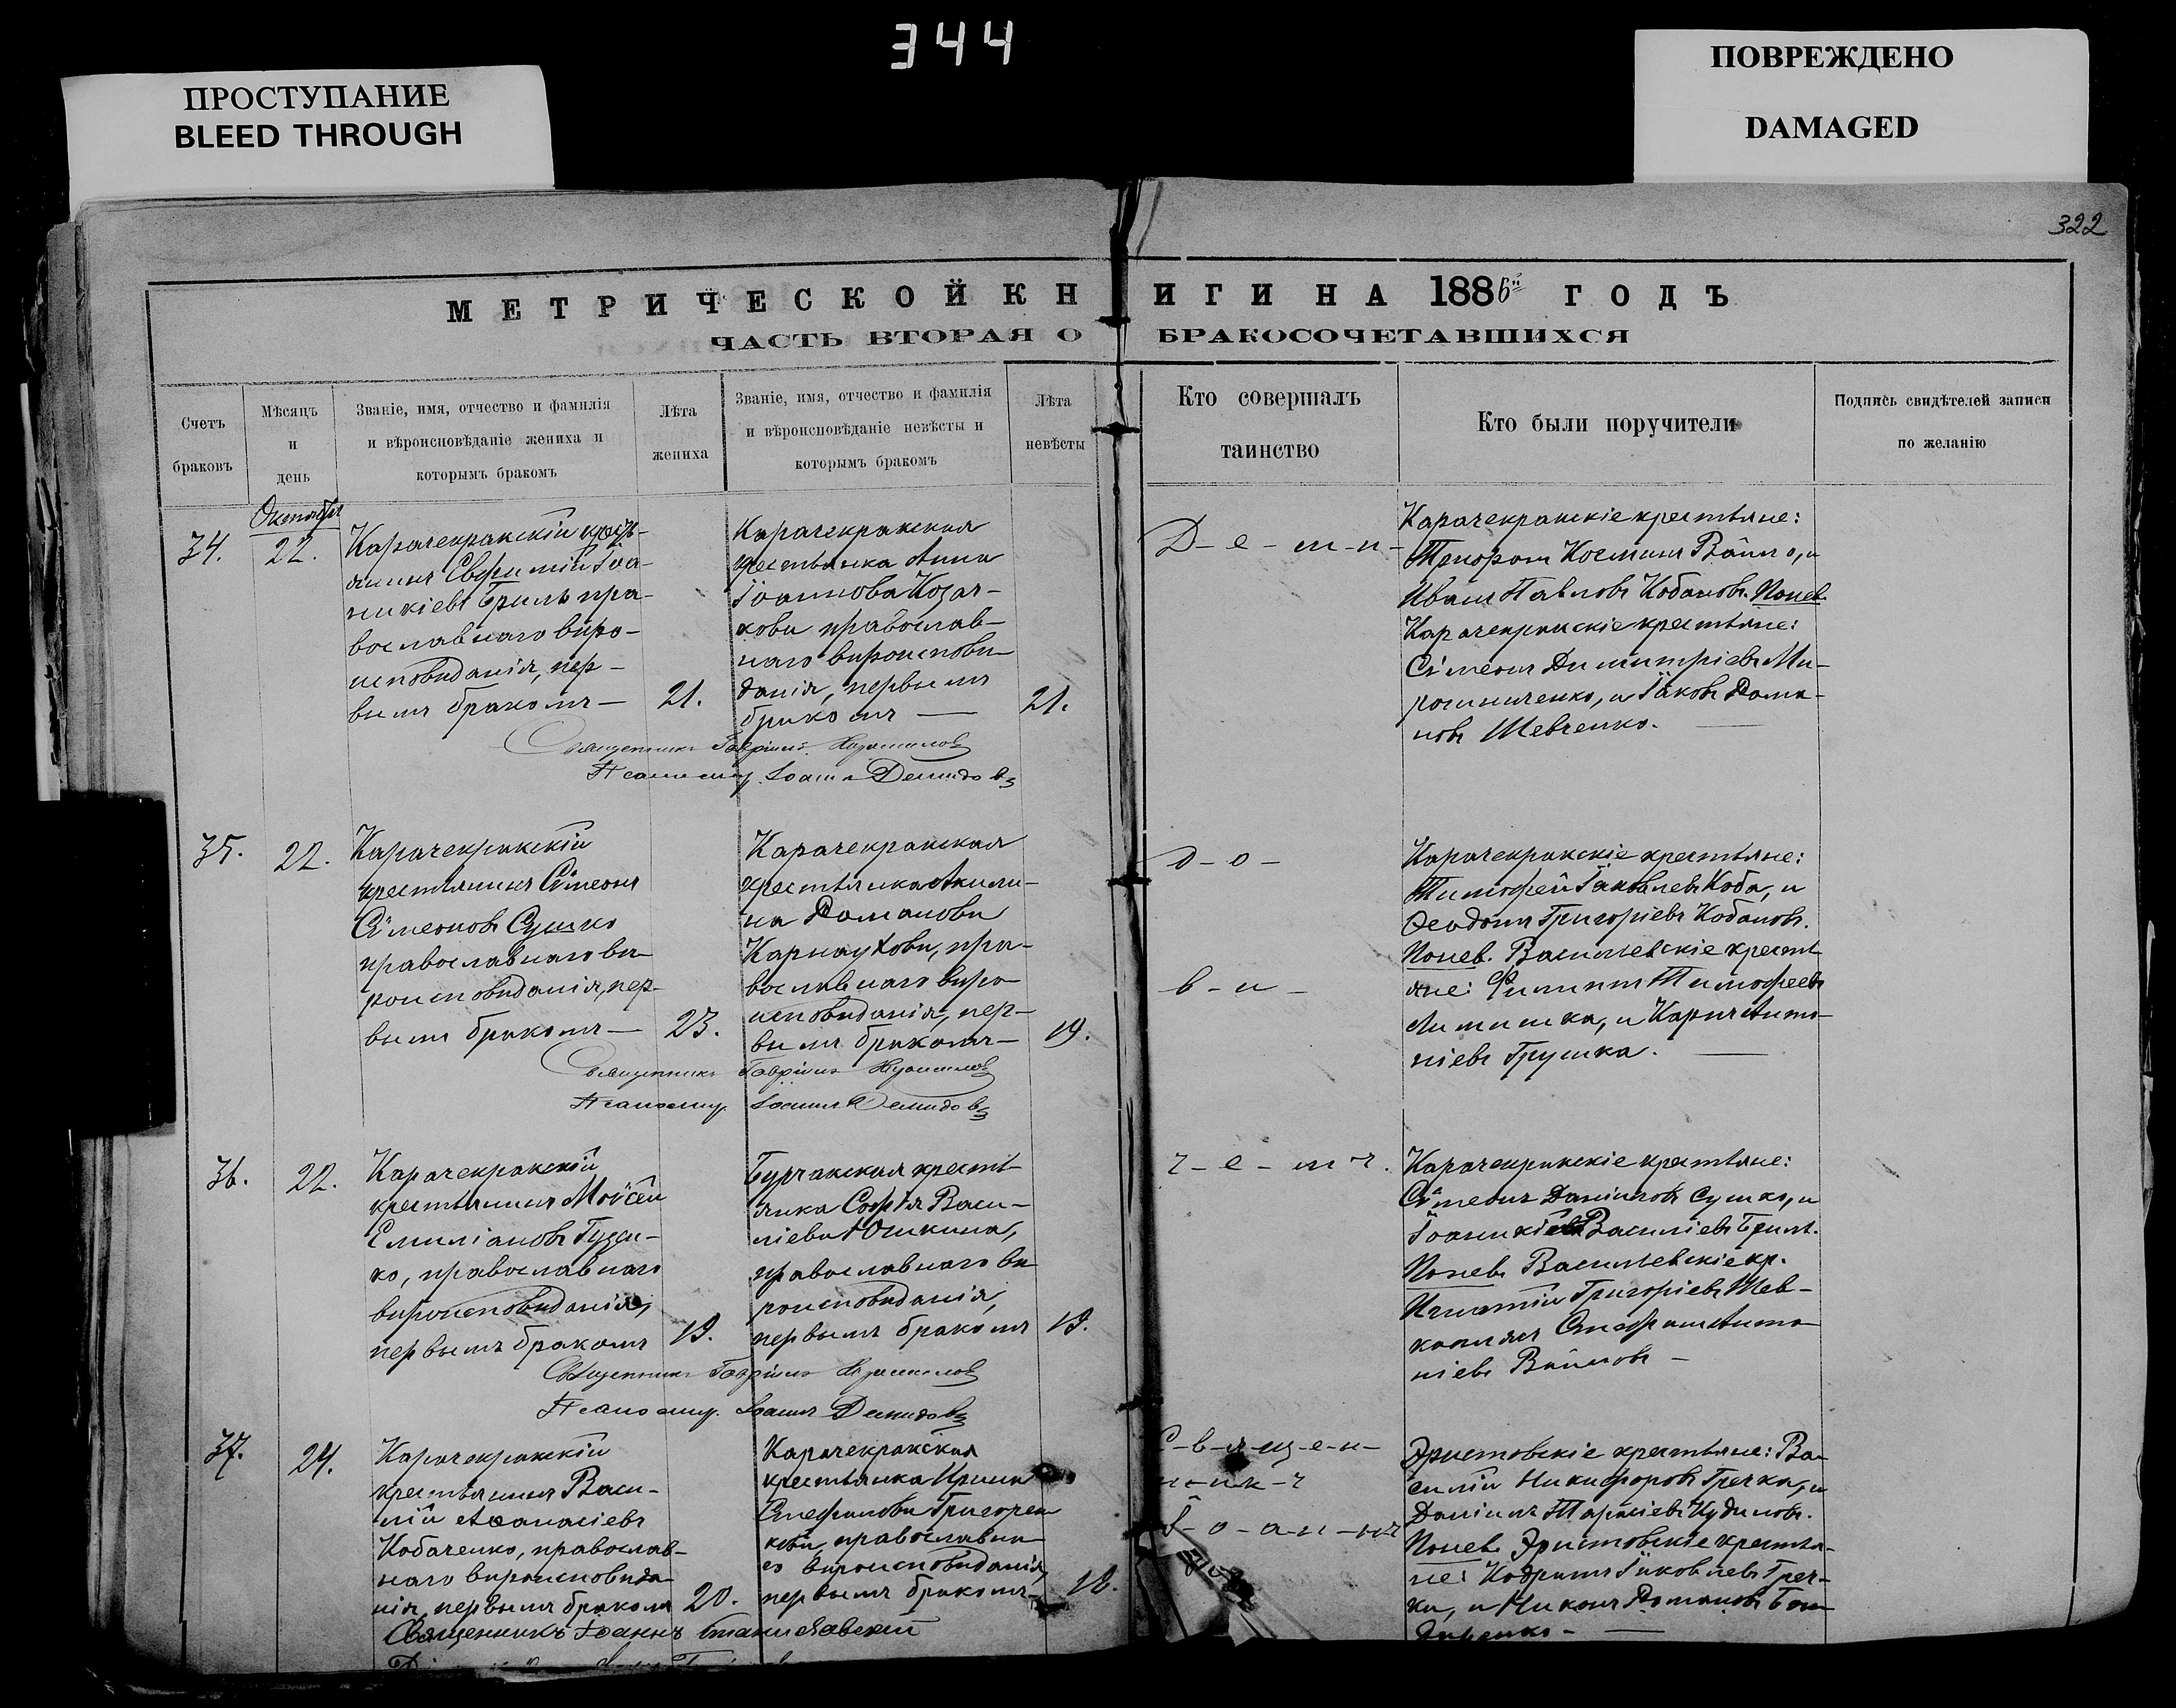 344
ПРОСТУПАНИЕ
BLEED THROUGH
ПОВРЕЖДЕНО
DAMAGED
322
МЕТРИЧЕСКОЙ КНИГИ НА 1886й ГОДЪ
ЧАСТЬ ВТОРАЯ О БРАКОСОЧЕТАВШИХСЯ
Счетъ
браковъ
Мѣсяцъ
и
день
Званіе, имя, отчество и фамилія
и вѣроисповѣданіе жениха и
которымъ бракомъ
Лѣта
жениха
Званіе, имя, отчество и фамилія
и вѣроисповѣданіе невѣсты и
которымъ бракомъ
Лѣта
невѣсты
Кто совершалъ
таинство
Кто были поручители
Подпись свидѣтелей записи
по желанію
Октября
34.
22.
Карачекракскій кресть-
янинъ Евфимій Іоан-
никіевъ Бриль пра-
вославнаго вѣро-
исповѣданія, пер-
вымъ бракомъ —
21.
Карачекракская
крестьянка Анна
Іоаннова Козач-
кова православ-
наго вѣроисповѣ-
данія, первымъ
бракомъ —
21.
Д-е-м-и-
Карачекракскіе крестьяне:
Трифонъ Косминъ Война, и
Иванъ Павловъ Кобановъ. Понев.
Карачекракскіе крестьяне:
Сѵмеонъ Димитріевъ Ми-
рошниченко, и Іаковъ Дома-
новъ Шевченко. —
Священникъ Гавріилъ
Псаломщ. Іоаннъ Демидовъ
35.
22.
Карачекракскій
крестьянинъ Сѵмеонъ
Сѵмеоновъ Сушко
православнаго вѣ-
роисповѣданія, пер-
вымъ бракомъ —
23.
Карачекракская
крестьянка Акили-
на Доманова
Карнаухова, пра-
вославнаго вѣро-
исповѣданія, пер-
вымъ бракомъ —
19.
д-о-
в-и-
Карачекракскіе крестьяне:
Тимофей Іаковлевъ Коба, и
Ѳеодотъ Григоріевъ Кобановъ.
Понев. Васильевскіе кресть-
яне: Филиппъ Тимофеевъ
и Карпъ Анто-
ніевъ Грушка. —
Священникъ Гавріилъ
Псаломщ. Іоаннъ Демидовъ
36.
22.
Карачекракскій
крестьянинъ Моѵсей
Емиліановъ Гузен-
ко, православнаго
вѣроисповѣданія,
первымъ бракомъ
19.
Бурчакская кресть-
янка Софія Васи-
ліева Юшкина,
православнаго вѣ-
роисповѣданія,
первымъ бракомъ
19.
ч-е-м-ъ.
Карачекракскіе крестьяне:
Сѵмеонъ Даниловъ Сушко, и
Іоанникій Василіевъ Бриль.
Понев. Васильевскіе кр.
Игнатій Григоріевъ Шев-
Стефанъ Анто-
ніевъ Войновъ —
Священникъ Гавріилъ
Псаломщ. Іоаннъ Демидовъ
37.
24.
Карачекракскій
крестьянинъ Васи-
лій Аѳанасіевъ
Кобаченко, православ-
наго вѣроисповѣда-
нія, первымъ бракомъ
20.
Карачекракская
крестьянка Ирина
Стефанова Григорен-
кова, православна-
го вѣроисповѣданія,
первымъ бракомъ —
18.
С-в-я-щ-е-н-
н-и-к-ъ
І-о-а-н-нъ
Эристовскіе крестьяне: Ва-
силій Никифоровъ Гречка, и
Даніилъ Тарасіевъ Кудиновъ.
Понев. Эристовскіе крестья-
не: Кодратъ Іаковлевъ Греч-
ка, и Никонъ Домановъ Бон-
даренко. —
Священникъ Іоаннъ Станиславскій